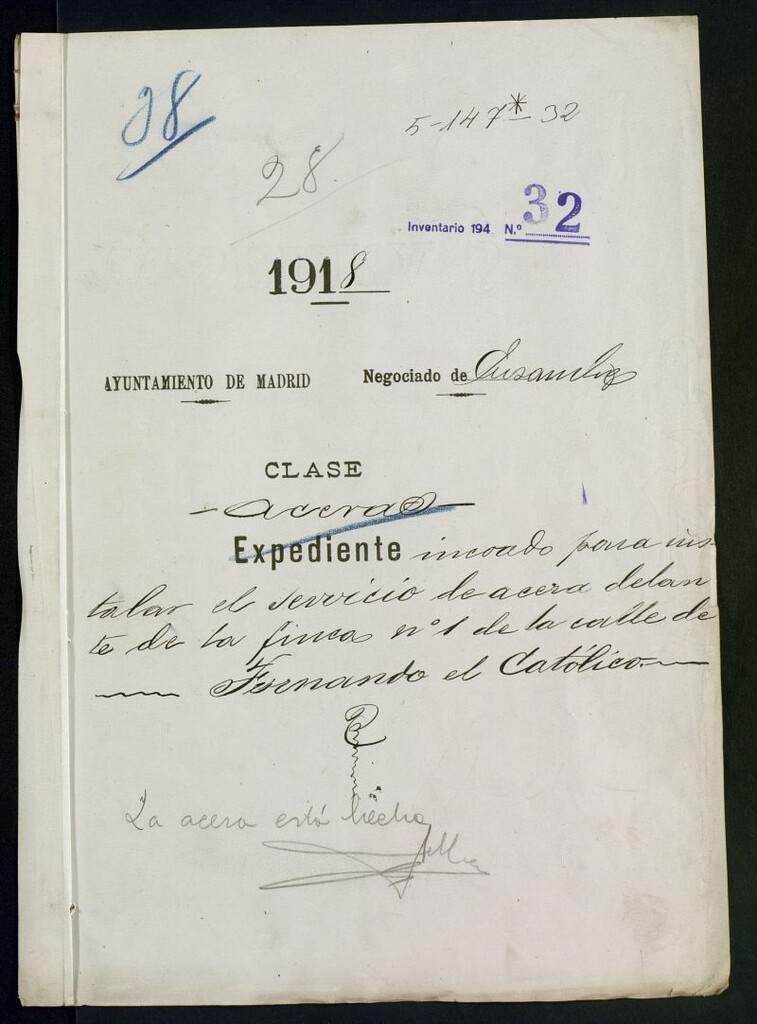 28
5-147*-32
28.
Inventario 194 N.º 32
1918
AYUNTAMIENTO DE MADRID Negociado de Ensanche
CLASE
-aceras-
Expediente incoado para ins-
talar el servicio de acera delan
te de la finca nº 1 de la calle de
Fernando el Católico
La acera está hecha